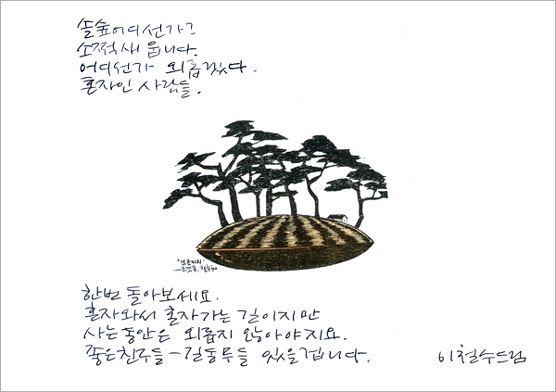 솔숲 어디선가?
소쩍새 웁니다.
어디선가 외롭겠다.
혼자인 사람들.
한번 돌아보세요.
혼자와서 혼자가는 길이지만
사는동안은 외롭지 않아야지요.
좋은친구들-길동무들 있을겁니다.
이철수드림